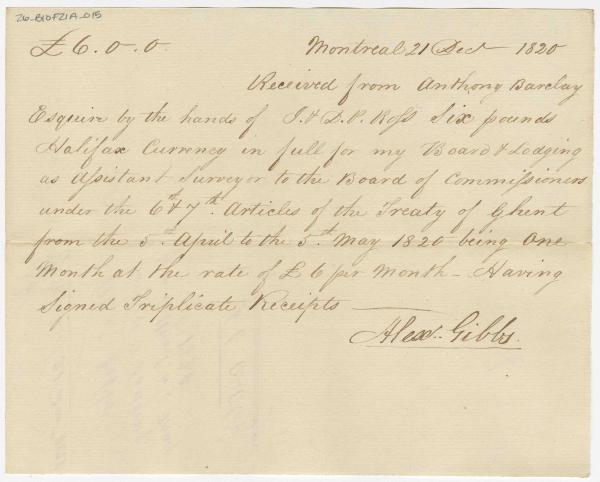 26-B10F21A-015
£6.0.0.
Montreal 21 Decr 1820
Received from Anthony Barclay
Esquire by the hands of J. & D. P. Ross Six pounds
Halifax Currency in full for my Board & Lodging
as Assistant Surveyor to the Board of Commissioners
under the 6th & 7th Articles of the Treaty of Ghent
from the 5th April to the 5th May 1820 being One
Month at the rate of £6 per Month – Having
Signed Triplicate Receipts —
Alexr. Gibbs.